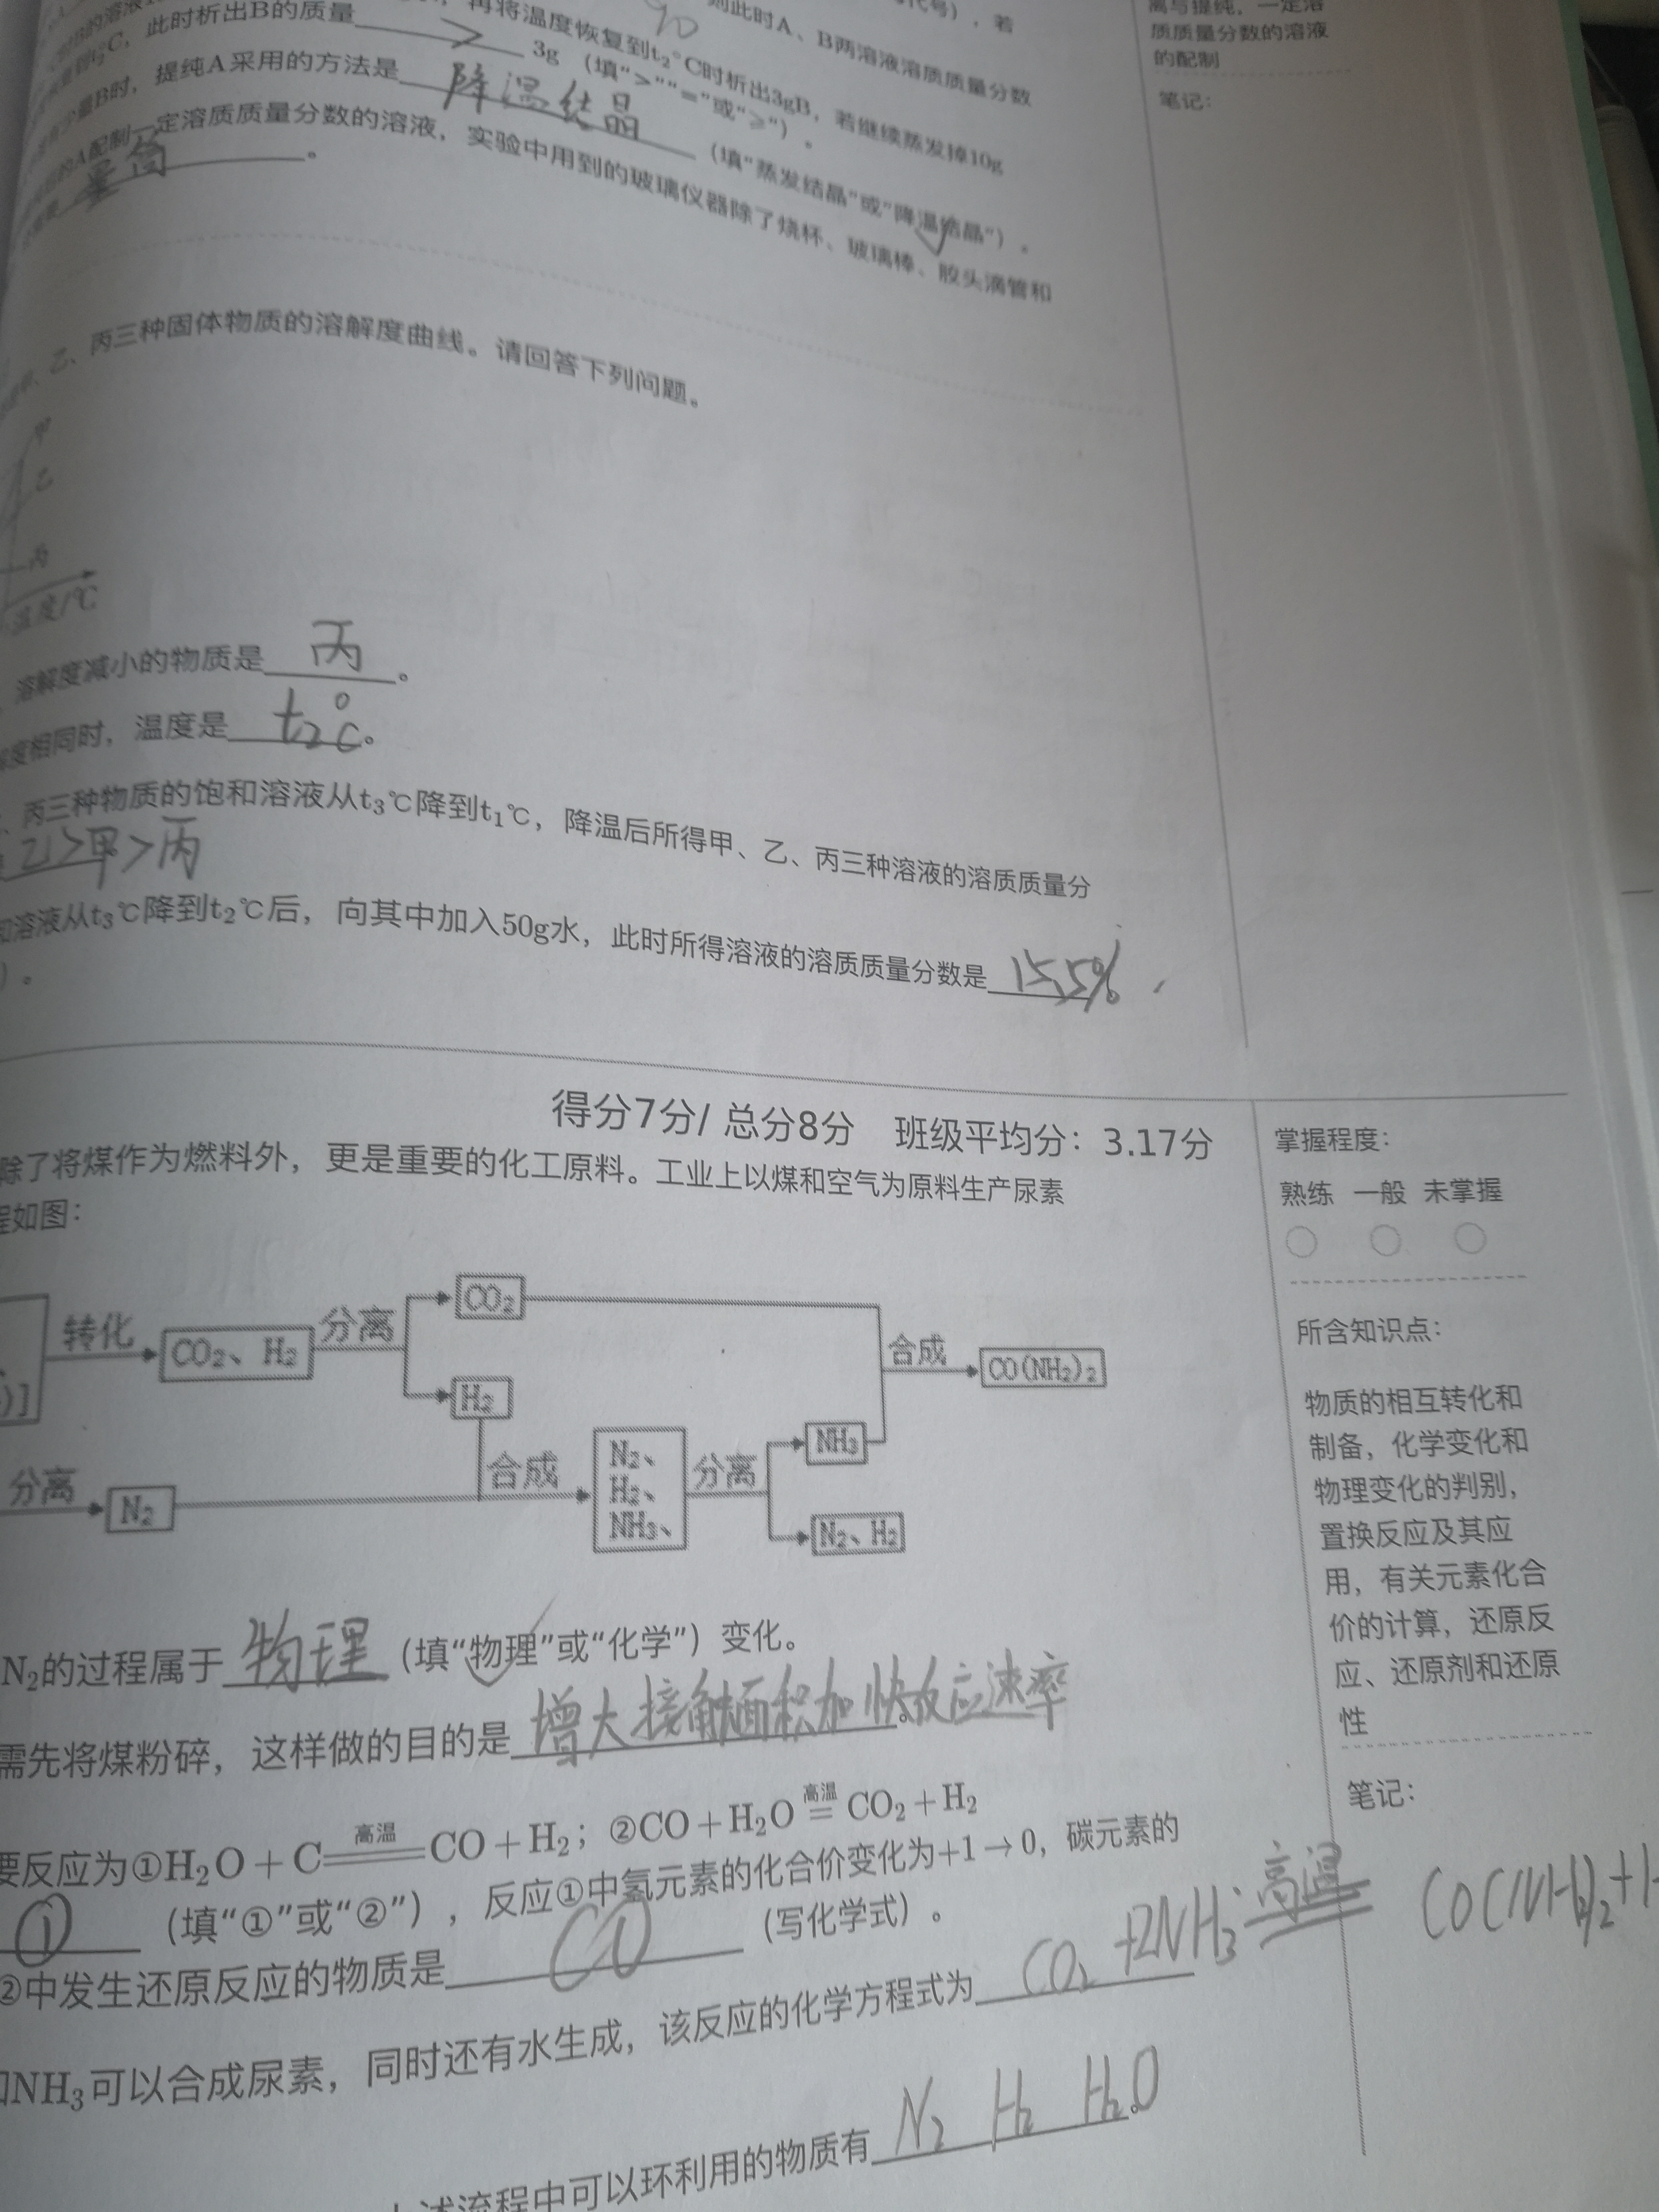 代号），若
90 则此时A、B两溶液溶质质量分数
再将温度恢复到t₂℃时析出3gB，若继续蒸发掉10g
℃，此时析出B的质量 > 3g（填“>”“=”或“≥”）。
量B时，提纯A采用的方法是 降温结晶 （填“蒸发结晶”或“降温结晶”）。
的A配制一定溶质质量分数的溶液，实验中用到的玻璃仪器除了烧杯、玻璃棒、胶头滴管和
量筒 。
离与提纯，一定溶
质质量分数的溶液
的配制
笔记：
乙、丙三种固体物质的溶解度曲线。请回答下列问题。
甲
乙
丙
温度/℃
溶解度减小的物质是 丙 。
度相同时，温度是 t₂℃。
、丙三种物质的饱和溶液从t₃℃降到t₁℃，降温后所得甲、乙、丙三种溶液的溶质质量分
乙>甲>丙
和溶液从t₃℃降到t₂℃后，向其中加入50g水，此时所得溶液的溶质质量分数是
）。
得分7分/ 总分8分 班级平均分：3.17分
除了将煤作为燃料外，更是重要的化工原料。工业上以煤和空气为原料生产尿素
程如图：
转化 CO₂、H₂ 分离 CO₂ 合成 CO(NH₂)₂
)]
H₂
分离 N₂ 合成 N₂、H₂、NH₃、 分离 NH₃
N₂、H₂
N₂的过程属于 物理 （填“物理”或“化学”）变化。
需先将煤粉碎，这样做的目的是 增大接触面积加快反应速率 。
要反应为①H₂O+C 高温 CO+H₂；②CO+H₂O 高温 = CO₂+H₂
① （填“①”或“②”），反应①中氢元素的化合价变化为+1→0，碳元素的
②中发生还原反应的物质是 CO （写化学式）。
和NH₃可以合成尿素，同时还有水生成，该反应的化学方程式为 CO₂+2NH₃ 高温 CO(NH₂)₂+H
上述流程中可以环利用的物质有 N₂ H₂ H₂O 。
掌握程度：
熟练 一般 未掌握
所含知识点：
物质的相互转化和
制备，化学变化和
物理变化的判别，
置换反应及其应
用，有关元素化合
价的计算，还原反
应、还原剂和还原
性
笔记：